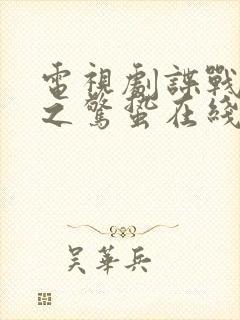 電視劇諜戰
之驚蟄在綫
吳華兵